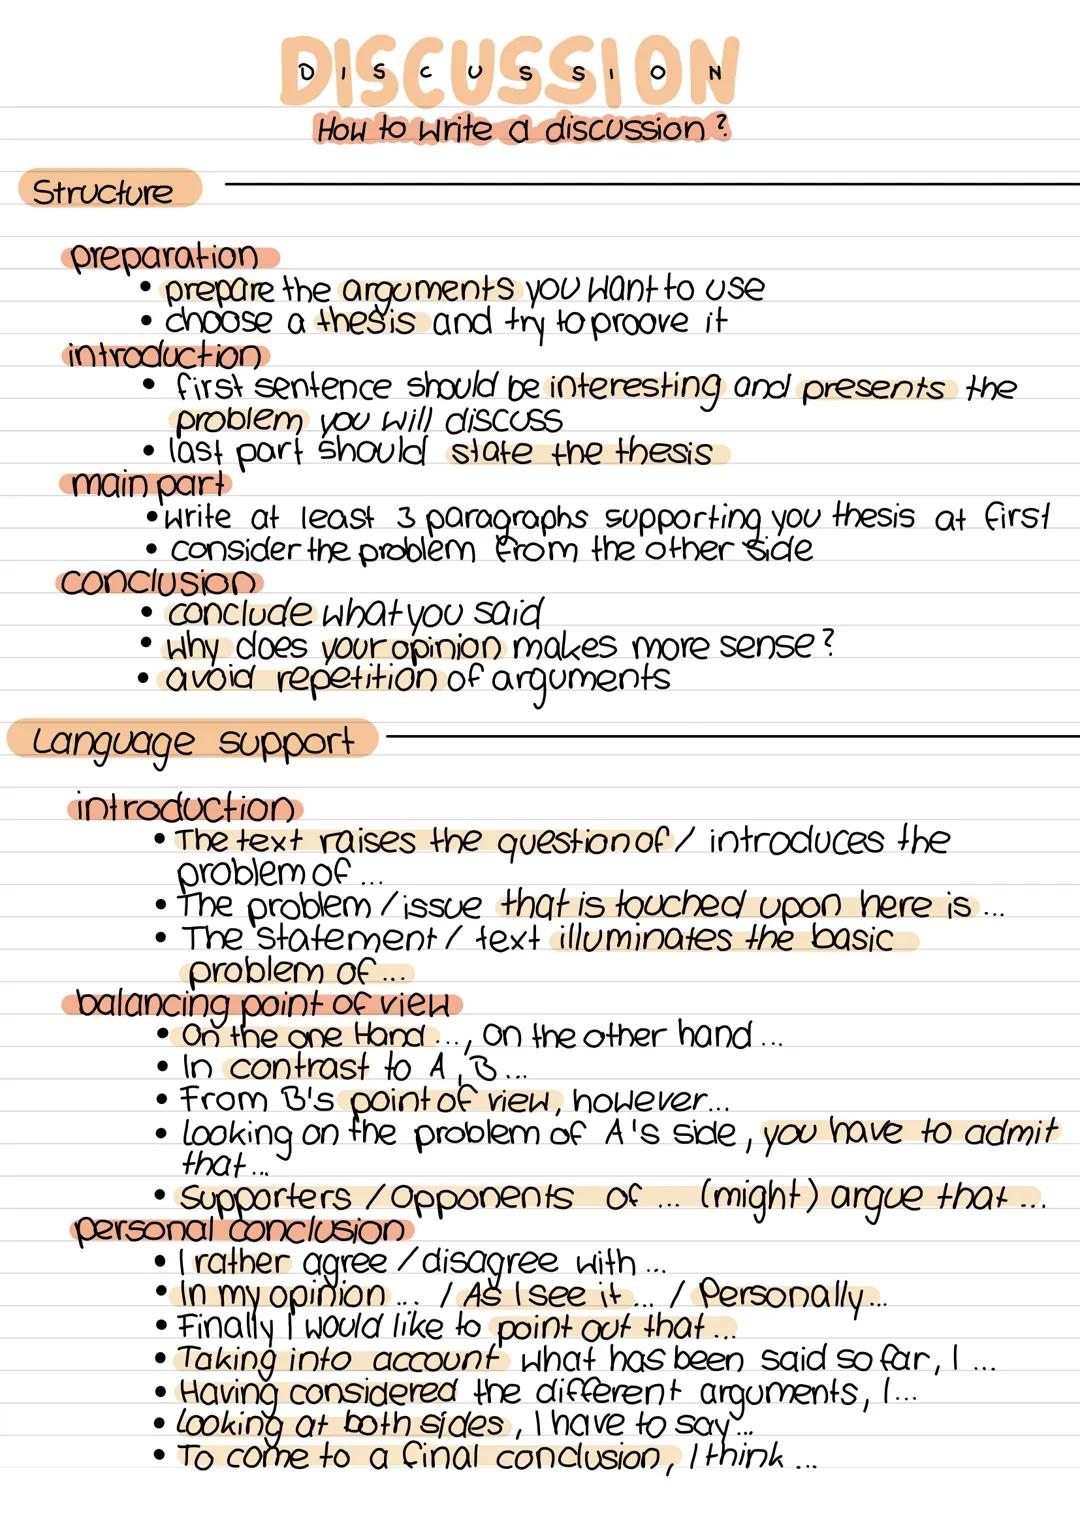 DISCUSSION
DISCUSSION
How to write a discussion?
Structure
preparation
• prepare the arguments you want to use
• choose a thesis and try to proove it
introduction
• first sentence should be interesting and presents the
problem you will discuss
• last part should state the thesis
main part
• write at least 3 paragraphs supporting you thesis at first
• consider the problem from the other side
conclusion
• conclude what you said
• why does your opinion makes more sense?
• avoid repetition of arguments
Language support
introduction
• The text raises the question of / introduces the
problem of ...
• The problem / issue that is touched upon here is ...
• The statement / text illuminates the basic
problem of ...
balancing point of view
• On the one Hand ..., on the other hand ...
• In contrast to A, B ...
• From B's point of view, however...
• Looking on the problem of A's side, you have to admit
that ...
• Supporters / Opponents of ... (might) argue that ...
personal conclusion
• I rather agree / disagree with ...
• In my opinion ... / As I see it ... / Personally ...
• Finally I would like to point out that ...
• Taking into account what has been said so far, I ...
• Having considered the different arguments, I ...
• Looking at both sides, I have to say ...
• To come to a final conclusion, I think ...